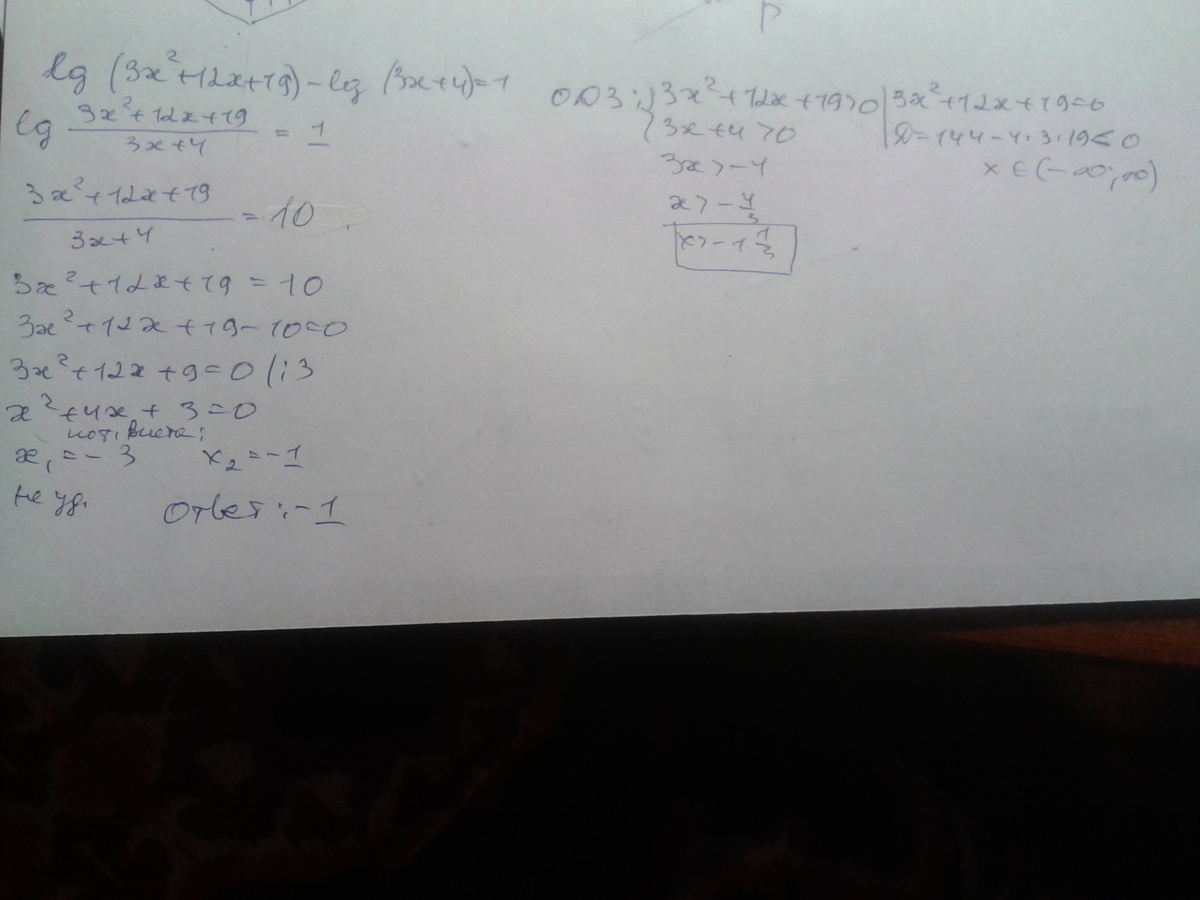 P
lg (3x²+12x+19) - lg (3x+4) = 1
lg (3x²+12x+19)/(3x+4) = 1
(3x²+12x+19)/(3x+4) = 10
3x²+12x+19 = 10
3x²+12x+19-10=0
3x²+12x+9=0 |:3
x²+4x+3=0
по т. Виета:
x₁=-3 x₂=-1
не уд.
Ответ: -1
ОДЗ: { 3x²+12x+19>0
3x+4>0
3x>-4
x>-4/3
x>-1 1/3
3x²+12x+19=0
D=144-4·3·19<0
x∈(-∞;∞)